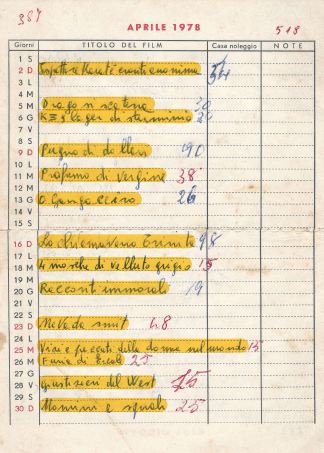 387
APRILE 1978
518
Giorni TITOLO DEL FILM Casa noleggio NOTE
1 S
2 D Ispettore Karatè 54
3 L
4 M
5 M Drago si scatena 30
6 G K lager di sterminio 20
7 V
8 S
9 D Pugno di 90
10 L
11 M Profumo di vergine 38
12 M
13 G O Cangaceiro 26
14 V
15 S
16 D Lo chiamavano Trinità 98
17 L
18 M 4 mosche di velluto grigio 15
19 M
20 G Racconti immorali 19
21 V
22 S
23 D 48
24 L
25 M Vizi e peccati della donna nel mondo 15
26 M Furia di Ercole 25
27 G
28 V Giustizieri del West 75
29 S
30 D Uomini e squali 25